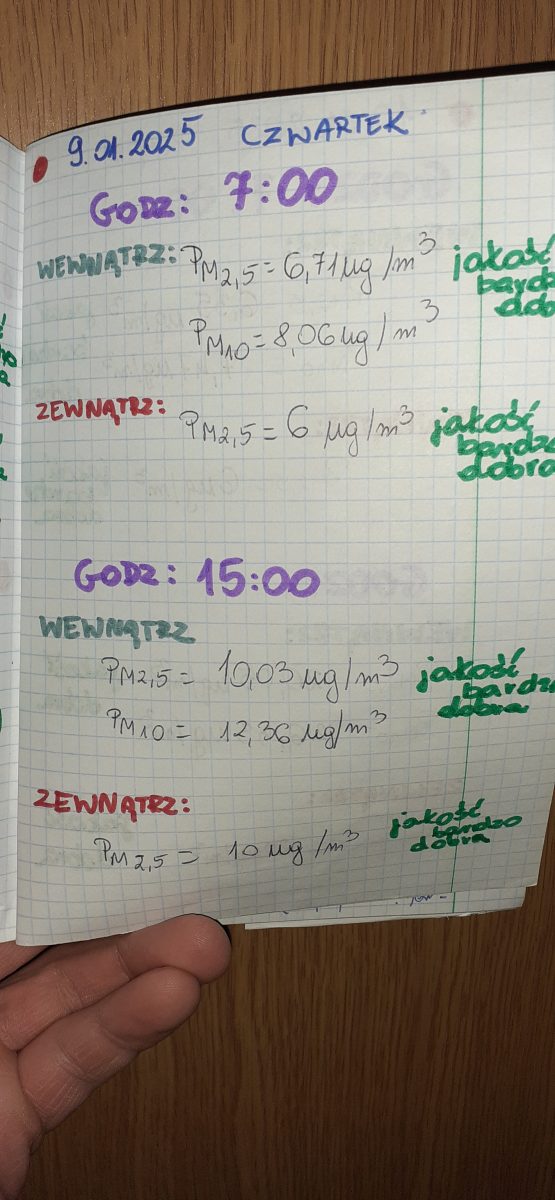 9.01.2025 CZWARTEK
GODZ: 7:00
WEWNĄTRZ: PM2,5 = 6,71 µg/m³ jakość
bardzo
dob
PM10 = 8,06 µg/m³
ZEWNĄTRZ: PM2,5 = 6 µg/m³ jakość
bardzo
dobra
GODZ: 15:00
WEWNĄTRZ
PM2,5 = 10,03 µg/m³ jakość
bardzo
dobra
PM10 = 12,36 µg/m³
ZEWNĄTRZ:
PM2,5 = 10 µg/m³ jakość
bardzo
dobra